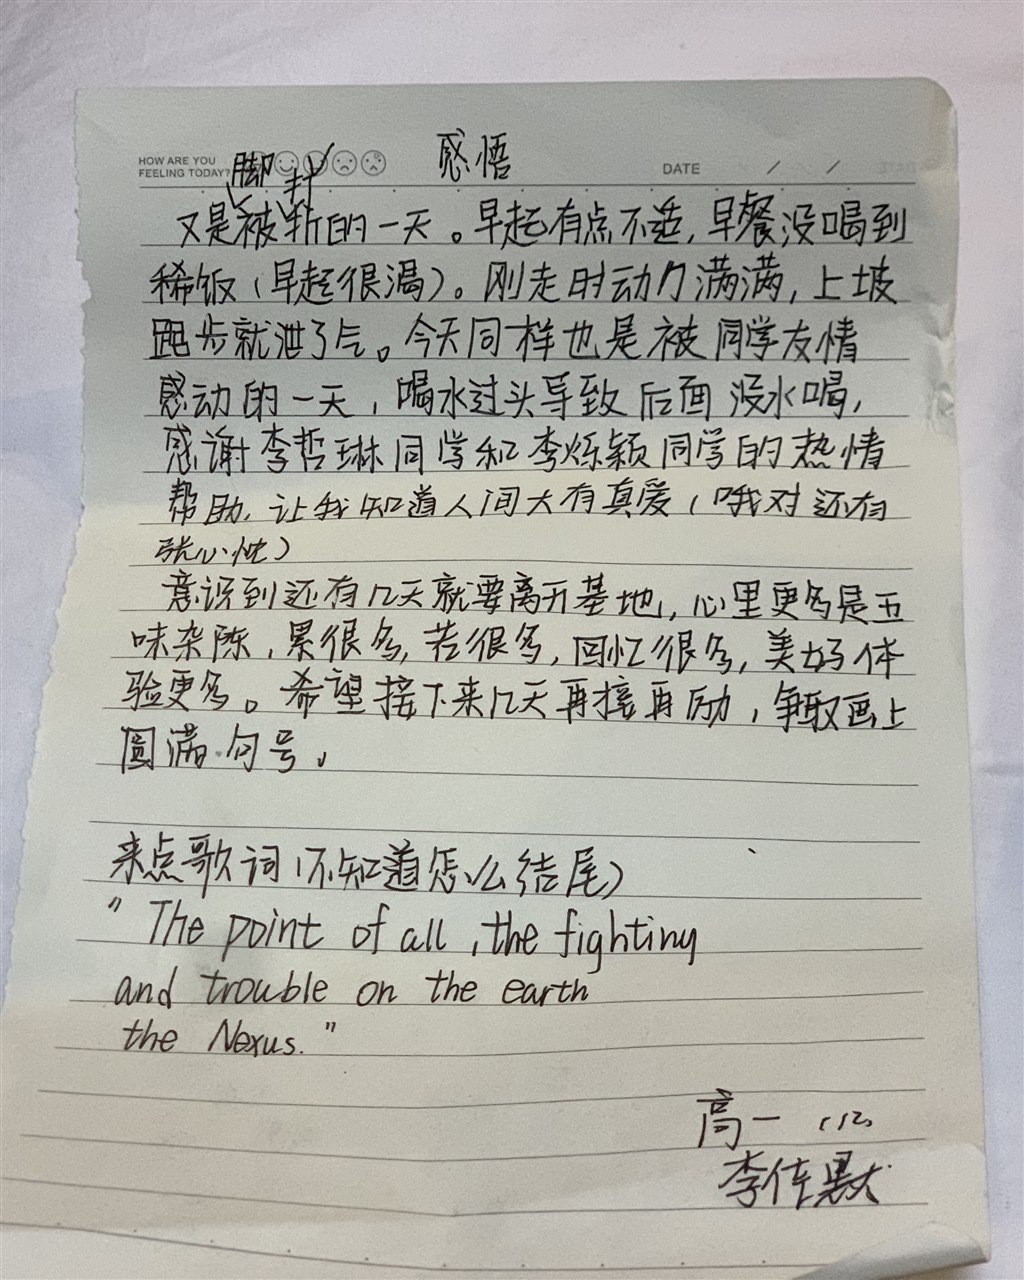 HOW ARE YOU
FEELING TODAY?
感悟
DATE / /
脚 封
又是被折的一天。早起有点不适,早餐没喝到
稀饭(早起很渴)。刚走时动力满满,上坡
跑步就泄了气。今天同样也是被同学友情
感动的一天,喝水过头导致后面没水喝,
感谢李哲琳同学和李烁颖同学的热情
帮助,让我知道人间大有真爱(哦对还有
张心忱)
意识到还有几天就要离开基地,心里更多是五
味杂陈,累很多,苦很多,回忆很多,美好体
验更多。希望接下来几天再接再励,争取画上
圆满句号。
来点歌词(不知道怎么结尾)
"The point of all, the fighting
and trouble on the earth
the Nexus."
高一 (12)
李佳默